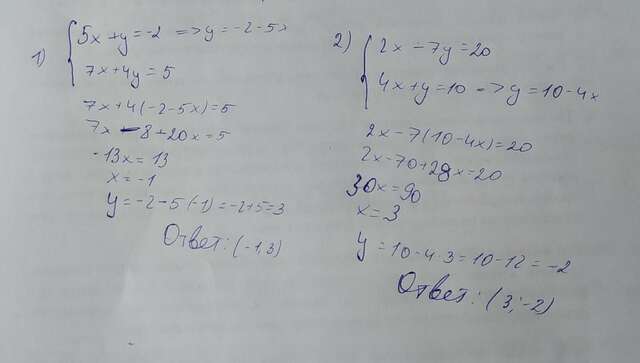 1) 5x+y=-2 => y=-2-5x
7x+4y=5
7x+4(-2-5x)=5
7x-8+20x=5
-13x=13
x=-1
y=-2-5(-1)=-2+5=3
Ответ: (-1,3)
2) 2x-7y=20
4x+y=10 => y=10-4x
2x-7(10-4x)=20
2x-70+28x=20
30x=90
x=3
y=10-4·3=10-12=-2
Ответ: (3;-2)